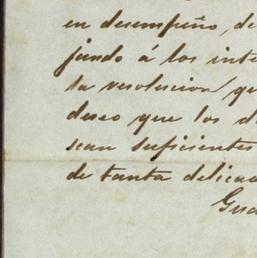 en desempeño, de
jando á los inte
la resolucion que
deseo que los d
sean suficientes
de tanta delicad
Gua